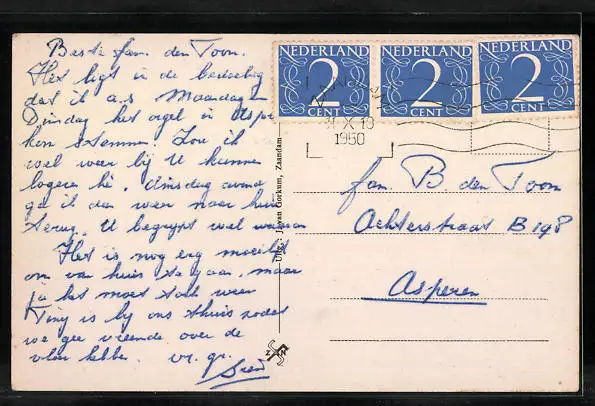 Beste fam. den Toom.
Het ligt in de bedoeling
dat ik a.s. Maandag en
Dinsdag het orgel in Aspe
ren stemmen. Zou ik
wel weer bij U kunnen
logeren hè, dinsdag avond
ga ik dan weer naar huis
terug. U begrypt wel waarom
Het is nog erg moeilijk
om van huis te gaan, maar
ja het moet toch weer
Tiny is by ons thuis zodat
we geen vreemde over de
vloer hebben. vr. gr.
NEDERLAND
2
CENT
NEDERLAND
2
CENT
NEDERLAND
2
CENT
X 18
1950
Uitg. J. van Gorkum, Zaandam
fam. B den Toom
Achterstraat B 198
Asperen
Z N